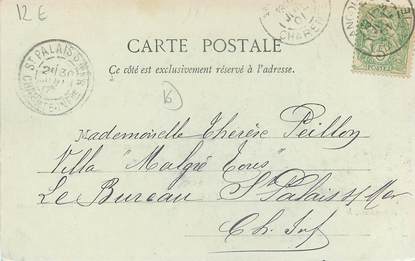 12 E
CARTE POSTALE
Ce côté est exclusivement réservé à l'adresse.
St PALAIS-S-MER
CHARENTE-INFRE
Mademoiselle Thérèse Peillon
Villa "Malgré Tous"
Le Bureau St Palais s/ Mer
Ch. Inf